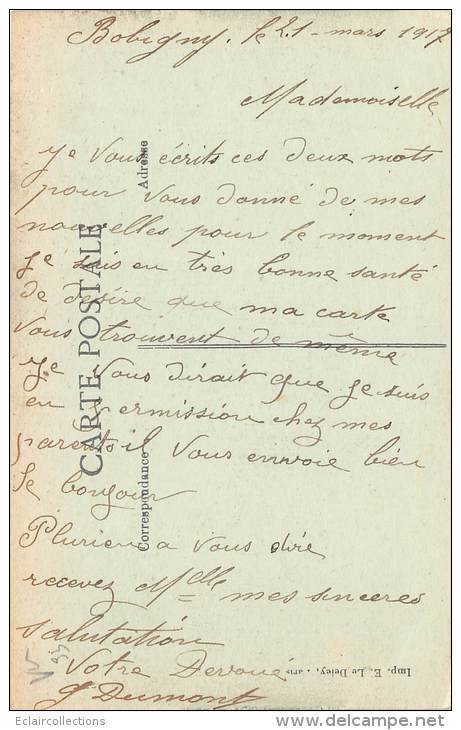 Bobigny, le 21 - mars 1917
Mademoiselle
Je vous écrits ces deux mots
pour vous donné de mes
nouvelles pour le moment
je suis en très bonne santé
de désire que ma carte
vous trouvent de même
Je vous dirait que je suis
en permission chez mes
parents il vous envoie bien
le bonjour
Plurien a vous dire
recevez Melle mes sinceres
salutation
Votre Dévoué
J Dumont
CARTE POSTALE
Correspondance
Adresse
Imp. E. Le Deley, Paris
Eclaircollections